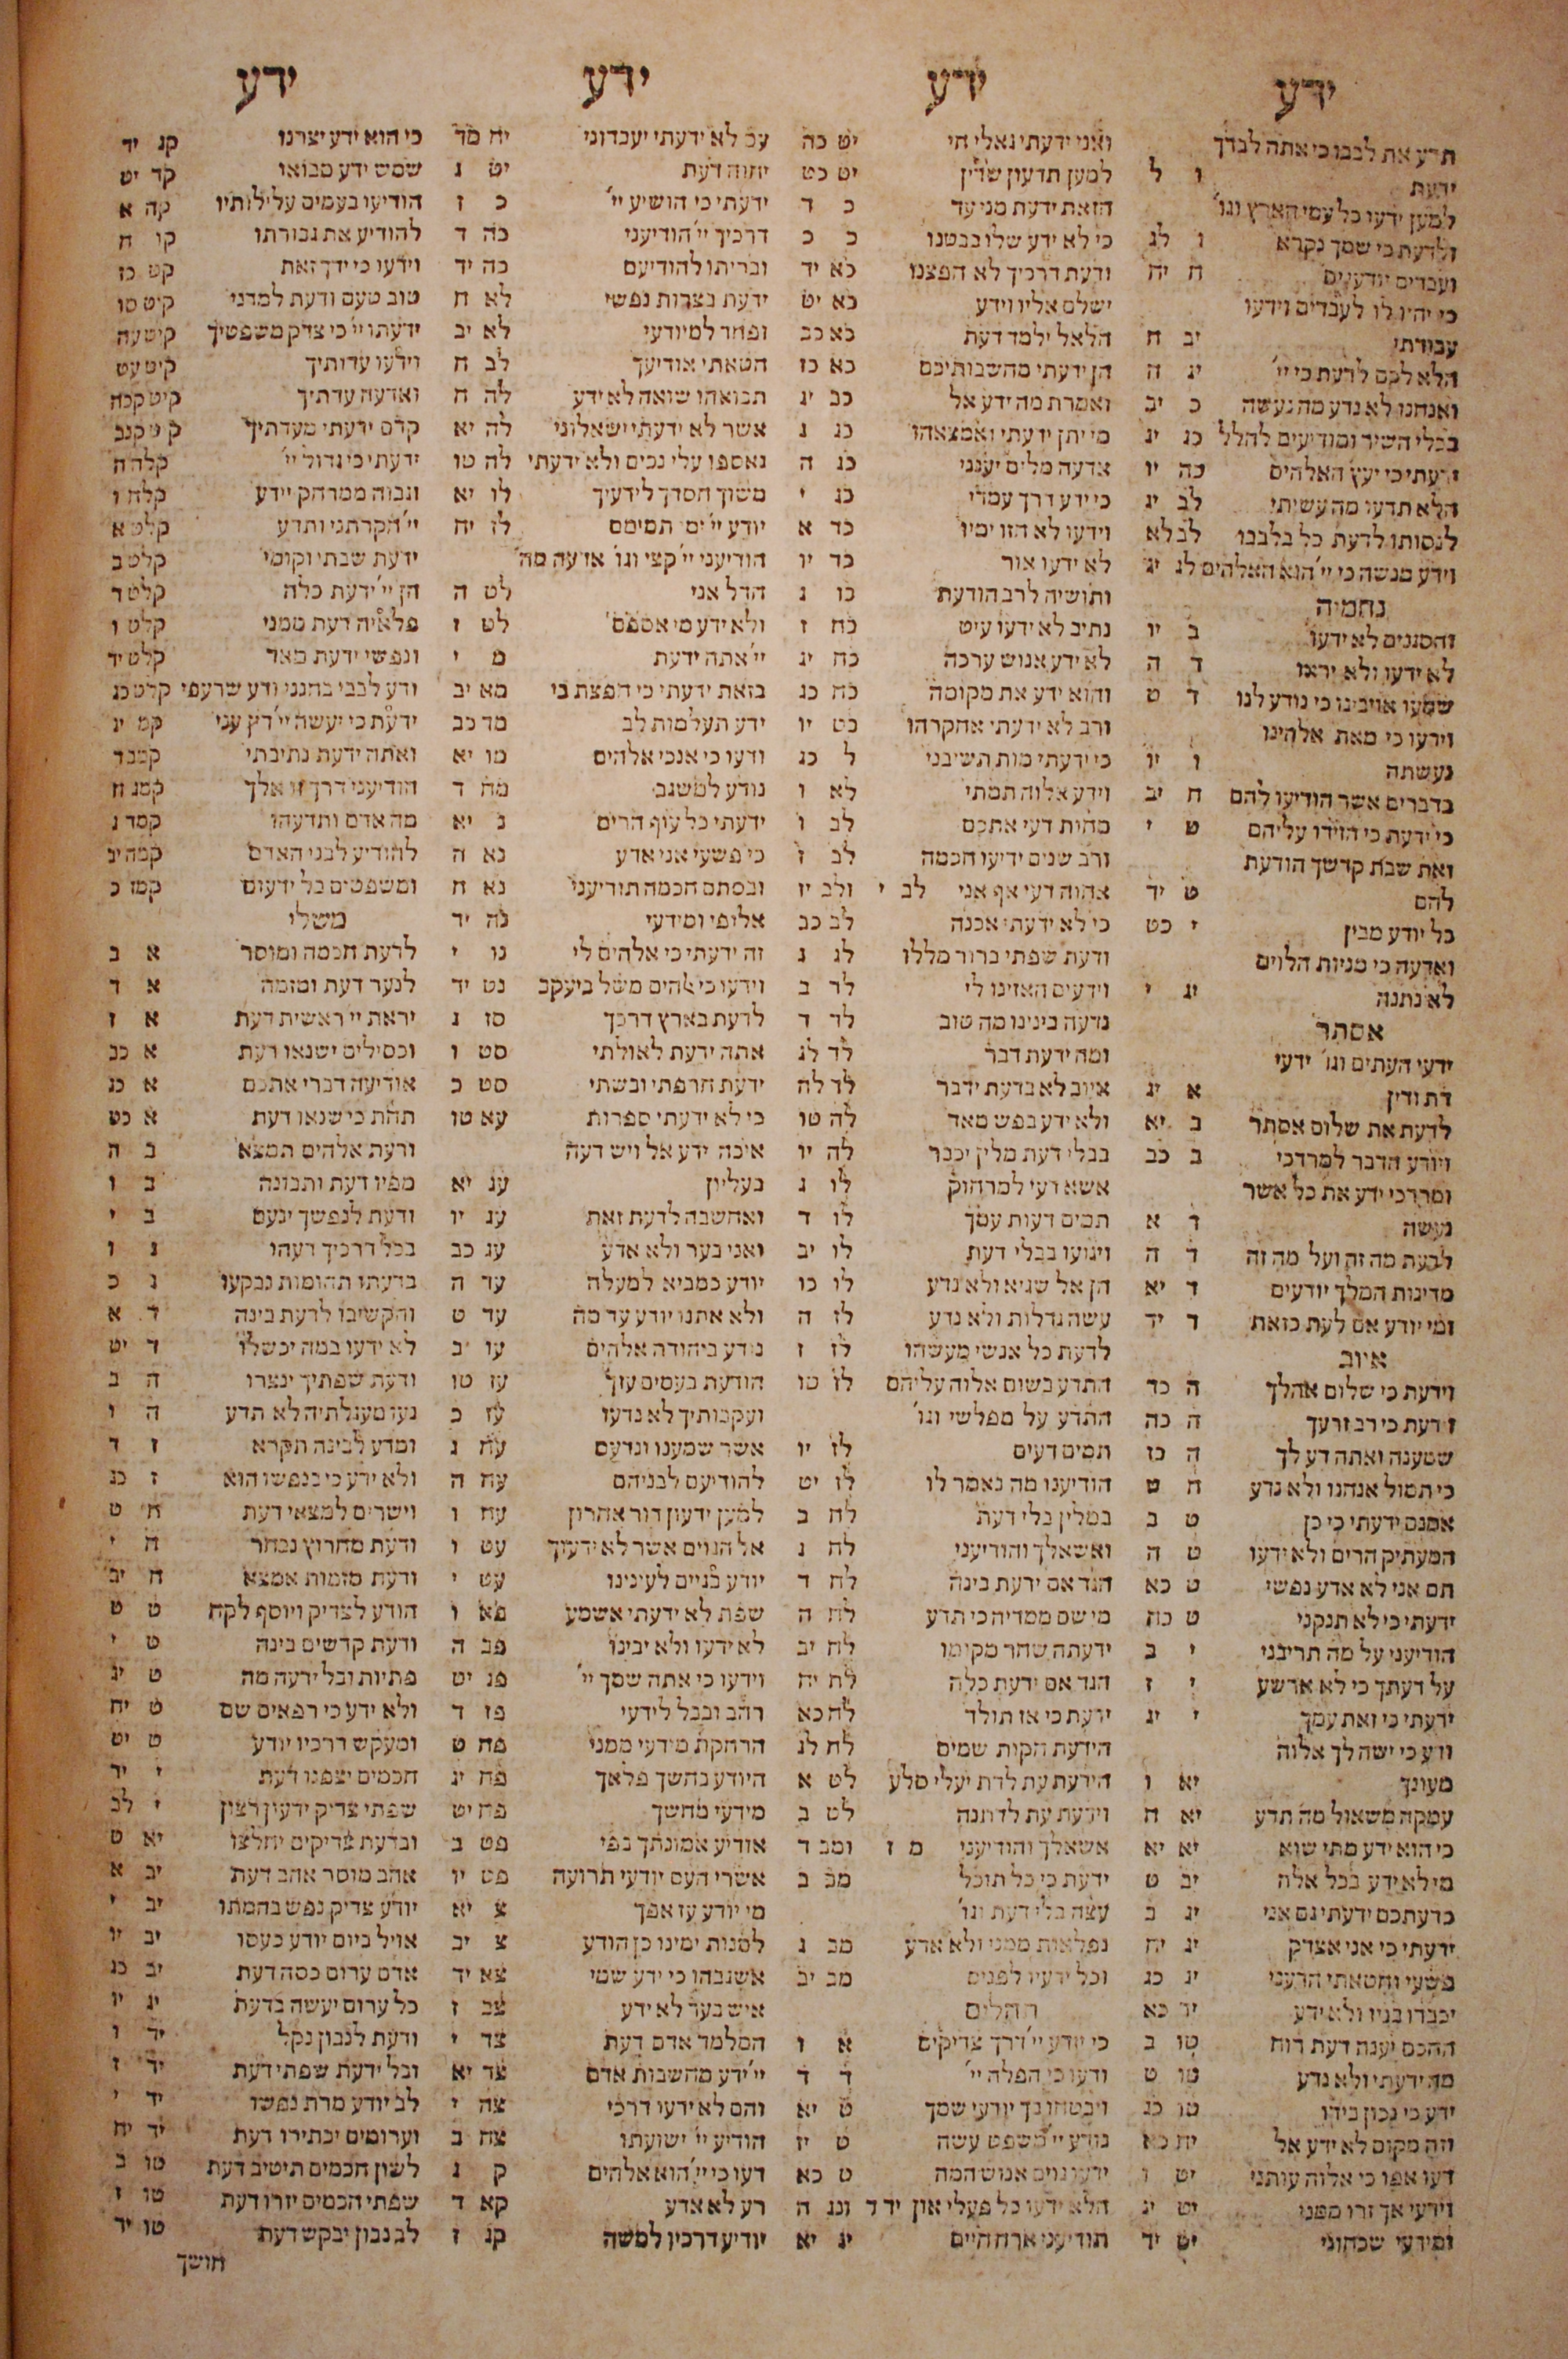 ידע ידע ידע ידע
תדע את לבבו כי אתה לבדך
ידעת ו ל
למען ידעו כל עמי הארץ וגו'
ולדעת כי שמך נקרא ו לג
ועבדים יודעים ח יח
כי יהיו לו לעבדים וידעו
עבודתי יב ח
הלא לכם לדעת כי יי' יג ה
ואנחנו לא נדע מה נעשה כ יב
בכלי השיר ומודיעים להלל כג יג
ידעתי כי יעץ האלהים כה יו
הלא תדעו מה עשיתי לב יג
לנסותו לדעת כל בלבבו לב לא
וידע מנשה כי יי' הוא האלהים לג יג
נחמיה
והסגנים לא ידעו ב יו
לא ידעו ולא יראו ד ה
שמעו אויבינו כי נודע לנו ד ט
וידעו כי מאת אלהינו
נעשתה ו יו
בדברים אשר הודיעו להם ח יב
כי ידעת כי הזידו עליהם ט י
ואת שבת קדשך הודעת
להם ט יד
כל יודע מבין י כט
ואדעה כי מניות הלוים
לא נתנה יג י
אסתר
ידעי העתים וגו' ידעי
דת ודין א יג
לדעת את שלום אסתר ב יא
ויודע הדבר למרדכי ב כב
ומרדכי ידע את כל אשר
נעשה ד א
לדעת מה זה ועל מה זה ד ה
מדינות המלך יודעים ד יא
ומי יודע אם לעת כזאת ד יד
איוב
וידעת כי שלום אהלך ה כד
וידעת כי רב זרעך ה כה
שמענה ואתה דע לך ה כז
כי תמול אנחנו ולא נדע ח ט
אמנם ידעתי כי כן ט ב
המעתיק הרים ולא ידעו ט ה
תם אני לא אדע נפשי ט כא
ידעתי כי לא תנקני ט כח
הודיעני על מה תריבני י ב
על דעתך כי לא ארשע י ז
ידעתי כי זאת עמך י יג
ודע כי ישה לך אלוה
מעונך יא ו
עמקה משאול מה תדע יא ח
כי הוא ידע מתי שוא יא יא
מי לא ידע בכל אלה יב ט
כדעתכם ידעתי גם אני יג ב
ידעתי כי אני אצדק יג יח
פשעי וחטאתי הדעני יג כג
יכבדו בניו ולא ידע יד כא
החכם יענה דעת רוח טו ב
מה ידעתי ולא נדע טו ט
ידע כי נכון בידו טו כג
וזה מקום לא ידע אל יח כא
דעו אפו כי אלוה עותני יט ו
וידעי אך זרו ממני יט יג
ומידעי שכחוני יט יד
ואני ידעתי גאלי חי יט כה
למען תדעון שדין יט כט
הזאת ידעת מני עד כ ד
כי לא ידע שלו בבטנו כ כ
ודעת דרכיך לא חפצנו כא יד
ישלם אליו וידע כא יט
הלאל ילמד דעת כא כב
הן ידעתי מחשבותיכם כא כז
ואמרת מה ידע אל כב יג
מי יתן ידעתי ואמצאהו כג ג
אדעה מלים יענני כג ה
כי ידע דרך עמדי כג י
וידעו לא חזו ימיו כד א
לא ידעו אור כד יו
ותושיה לרב הודעת כו ג
נתיב לא ידעו עיט כח ז
לא ידע אנוש ערכה כח יג
והוא ידע את מקומה כח כג
ורב לא ידעתי אחקרהו כט יו
כי ידעתי מות תשיבני ל כג
וידע אלוה תמתי לא ו
מחות דעי אתכם לב ו
ורב שנים ידיעו חכמה לב ז
אחוה דעי אף אני לב י ולב יז
כי לא ידעתי אכנה לב כב
ודעת שפתי ברור מללו לג ג
וידעים האזינו לי לד ב
נדעה בינינו מה טוב לד ד
ומה ידעת דבר לד לג
איוב לא בדעת ידבר לד לה
ולא ידע בפש מאד לה טו
בבלי דעת מלין יכבר לה יו
אשא דעי למרחוק לו ג
תמים דעות עמך לו ד
ויגועו בבלי דעת לו יב
הן אל שגיא ולא נדע לו כו
עשה גדלות ולא נדע לז ה
לדעת כל אנשי מעשהו לז ז
התדע בשום אלוה עליהם לז טו
התדע על מפלשי וגו'
תמים דעים לז יו
הודיענו מה נאמר לו לז יט
במלין בלי דעת לח ב
ואשאלך והודיעני לח ג
הגד אם ידעת בינה לח ד
מי שם ממדיה כי תדע לח ה
ידעתה שחר מקומו לח יב
הגד אם ידעת כלה לח יח
ידעת כי אז תולד לח כא
הידעת חקות שמים לח לג
הידעת עת לדת יעלי סלע לט א
וידעת עת לדתנה לט ב
אשאלך והודיעני מ ז ומב ד
ידעת כי כל תוכל מב ב
עצה בלי דעת וגו'
נפלאות ממני ולא אדע מב ג
וכל ידעיו לפנים מב יב
תהלים
כי יודע יי' דרך צדיקים א ו
ודעו כי הפלה יי' ד ד
ויבטחו בך יודעי שמך ט יא
נודע יי' משפט עשה ט יז
ידעו גוים אנוש המה ט כא
הלא ידעו כל פעלי און יד ד ונג ה
תודיעני ארח חיים יו יא
עם לא ידעתי יעבדוני יח מד
יחוה דעת יט ג
ידעתי כי הושיע יי' כ ז
דרכיך יי' הודיעני כה ד
ובריתו להודיעם כה יד
ידעת בצרות נפשי לא ח
ופחד למיודעי לא יב
חטאתי אודיעך לב ה
תבואהו שואה לא ידע לה ח
אשר לא ידעתי ישאלוני לה יא
נאספו עלי נכים ולא ידעתי לה טו
משוך חסדך לידעיך לו יא
יודע יי' ימי תמימם לז יח
הודיעני יי' קצי וגו' אדעה מה
חדל אני לט ה
ולא ידע מי אספם לט ז
יי' אתה ידעת מ י
בזאת ידעתי כי חפצת בי מא יב
ידע תעלמות לב מד כב
ודעו כי אנכי אלהים מו יא
נודע למשגב מח ד
ידעתי כל עוף הרים נ יא
כי פשעי אני אדע נא ה
ובסתם חכמה תודיעני נא ח
אלופי ומידעי נה יד
זה ידעתי כי אלהים לי נו י
וידעו כי אלהים משל ביעקב נט יד
לדעת בארץ דרכך סז ג
אתה ידעת לאולתי סט ו
ידעת חרפתי ובשתי סט כ
כי לא ידעתי ספרות עא טו
איכה ידע אל ויש דעה
בעליון עג יא
ואחשבה לדעת זאת עג יו
ואני בער ולא אדע עג כב
יודע כמביא למעלה עד ה
ולא אתנו יודע עד מה עד ט
נודע ביהודה אלהים עו ב
הודעת בעמים עזך עז טו
ועקבותיך לא נדעו עז כ
אשר שמענו ונדעם עח ג
להודיעם לבניהם עח ה
למען ידעון דור אחרון עח ו
אל הגוים אשר לא ידעוך עט ו
יודע בגיים לעינינו עט י
שפת לא ידעתי אשמע פא ו
לא ידעו ולא יבינו פב ה
וידעו כי אתה שמך יי' פג יט
רהב ובבל לידעי פז ד
הרחקת מידעי ממני פח ט
היודע בחשך פלאך פח יג
מידעי מחשך פח יט
אודיע אמונתך בפי פט ב
אשרי העם יודעי תרועה פט יו
מי יודע עז אפך צ יא
למנות ימינו כן הודע צ יב
אשגבהו כי ידע שמי צא יד
איש בער לא ידע צב ז
המלמד אדם דעת צד י
יי' ידע מחשבות אדם צד יא
והם לא ידעו דרכי צה י
הודיע יי' ישועתו צח ב
דעו כי יי' הוא אלהים ק ג
רע לא אדע קא ד
יודיע דרכיו למשה קג ז
כי הוא ידע יצרנו קג יד
שמש ידע מבואו קד יט
הודיעו בעמים עלילותיו קה א
להודיע את גבורתו קו ח
וידעו כי ידך זאת קט כז
טוב טעם ודעת למדני קיט סו
ידעתי יי' כי צדק משפטיך קיט עה
וידעו עדותיך קיט עט
ואדעה עדתיך קיט קכה
קדם ידעתי מעדתיך קיט קנב
ידעתי כי גדול יי' קלה ה
וגבוה ממרחק יידע קלח ו
יי' חקרתני ותדע קלט א
ידעת שבתי וקומי קלט ב
הן יי' ידעת כלה קלט ד
פלאיה דעת ממני קלט ו
ונפשי ידעת מאד קלט יד
ודע לבבי בחנני ודע שרעפי קלט כג
ידעת כי יעשה יי' דין עני קמ יג
ואתה ידעת נתיבתי קמב ד
הודיעני דרך זו אלך קמג ח
מה אדם ותדעהו קמד ג
להודיע לבני האדם קמה יב
ומשפטים בל ידעום קמז כ
משלי
לדעת חכמה ומוסר א ב
לנער דעת ומזמה א ד
יראת יי' ראשית דעת א ז
וכסילים ישנאו דעת א כב
אודיעה דברי אתכם א כג
תחת כי שנאו דעת א כט
ודעת אלהים תמצא ב ה
מפיו דעת ותבונה ב ו
ודעת לנפשך ינעם ב י
בכל דרכיך דעהו ג ו
בדעתו תהומות נבקעו ג כ
והקשיבו לדעת בינה ד א
לא ידעו במה יכשלו ד יט
ודעת שפתיך ינצרו ה ב
נעו מעגלתיה לא תדע ה ו
ומדע לבינה תקרא ז ד
ולא ידע כי בנפשו הוא ז כג
וישרים למצאי דעת ח ט
ודעת מחרוץ נבחר ח י
ודעת מזמות אמצא ח יב
הודע לצדיק ויוסף לקח ט ט
ודעת קדשים בינה ט י
פתיות ובל ידעה מה ט יג
ולא ידע כי רפאים שם ט יח
ומעקש דרכיו יודע ט יט
חכמים יצפנו דעת י יד
שפתי צדיק ידעון רצון י לב
ובדעת צדיקים יחלצו יא ט
אהב מוסר אהב דעת יב א
יודע צדיק נפש בהמתו יב י
אויל ביום יודע כעסו יב יו
אדם ערום כסה דעת יב כג
כל ערום יעשה בדעת יג יו
ודעת לנבון נקל יד ו
ובל ידעת שפתי דעת יד ז
לב יודע מרת נפשו יד י
וערומים יכתירו דעת יד יח
לשון חכמים תיטיב דעת טו ב
שפתי חכמים יזרו דעת טו ז
לב נבון יבקש דעת טו יד
חושך